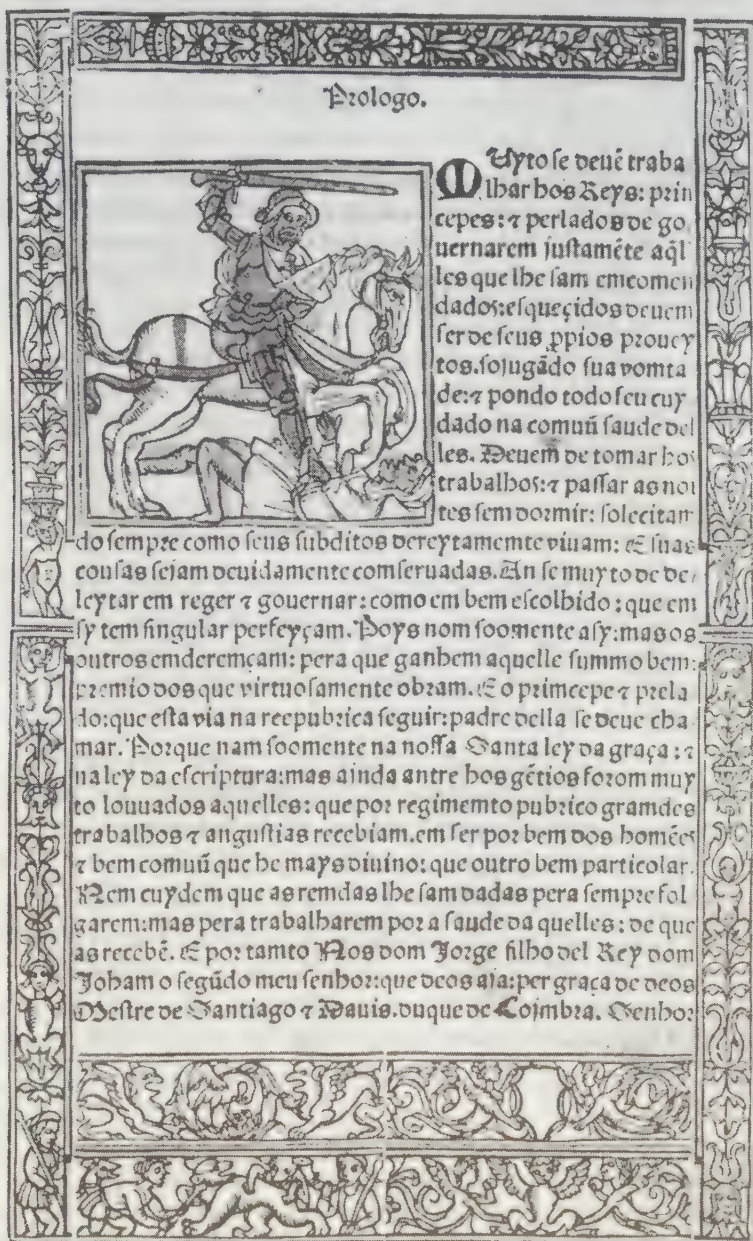 Prologo.
MUyto se deuẽ traba
lhar hos Reys: prin
cepes: ⁊ perlados de go
uernarem justamẽte aq̃l
les que lhe sam emcomen
dados: esqueçidos deuem
ser de seus ꝓpios prouey
tos. sojugãdo sua vomta
de: ⁊ pondo todo seu cuy
dado na comuũ saude del
les. Deuem de tomar hos
trabalhos: ⁊ passar as noi
tes sem dormir: solecitam
do sempre como seus subditos dereytamemte viuam: E suas
cousas sejam deuidamente comseruadas. An se muyto de de/
leytar em reger ⁊ gouernar: como em bem escolhido: que em
sy tem singular perfeyçam. Poys nom soomente asy: mas os
outros emderemçam: pera que ganhem aquelle summo bem:
premio dos que virtuosamente obram. E o primcepe ⁊ prela
do: que esta via na reepubrica seguir: padre della se deue cha
mar. Porque nam soomente na nossa Santa ley da graça: ⁊
na ley da escriptura: mas ainda antre hos gẽtios forom muy
to louuados aquelles: que por regimemto pubrico gramdes
trabalhos ⁊ angustias recebiam. em ser por bem dos homẽes
⁊ bem comuũ que he mays diuino: que outro bem particolar.
Nem cuydem que as remdas lhe sam dadas pera sempre fol
garem: mas pera trabalharem por a saude da quelles: de que
as recebẽ. E por tamto Nos dom Jorge filho del Rey dom
Joham o segũdo meu senhor: que deos aja: per graça de deos
Mestre de Santiago ⁊ Dauis. duque de Coimbra. Senhor